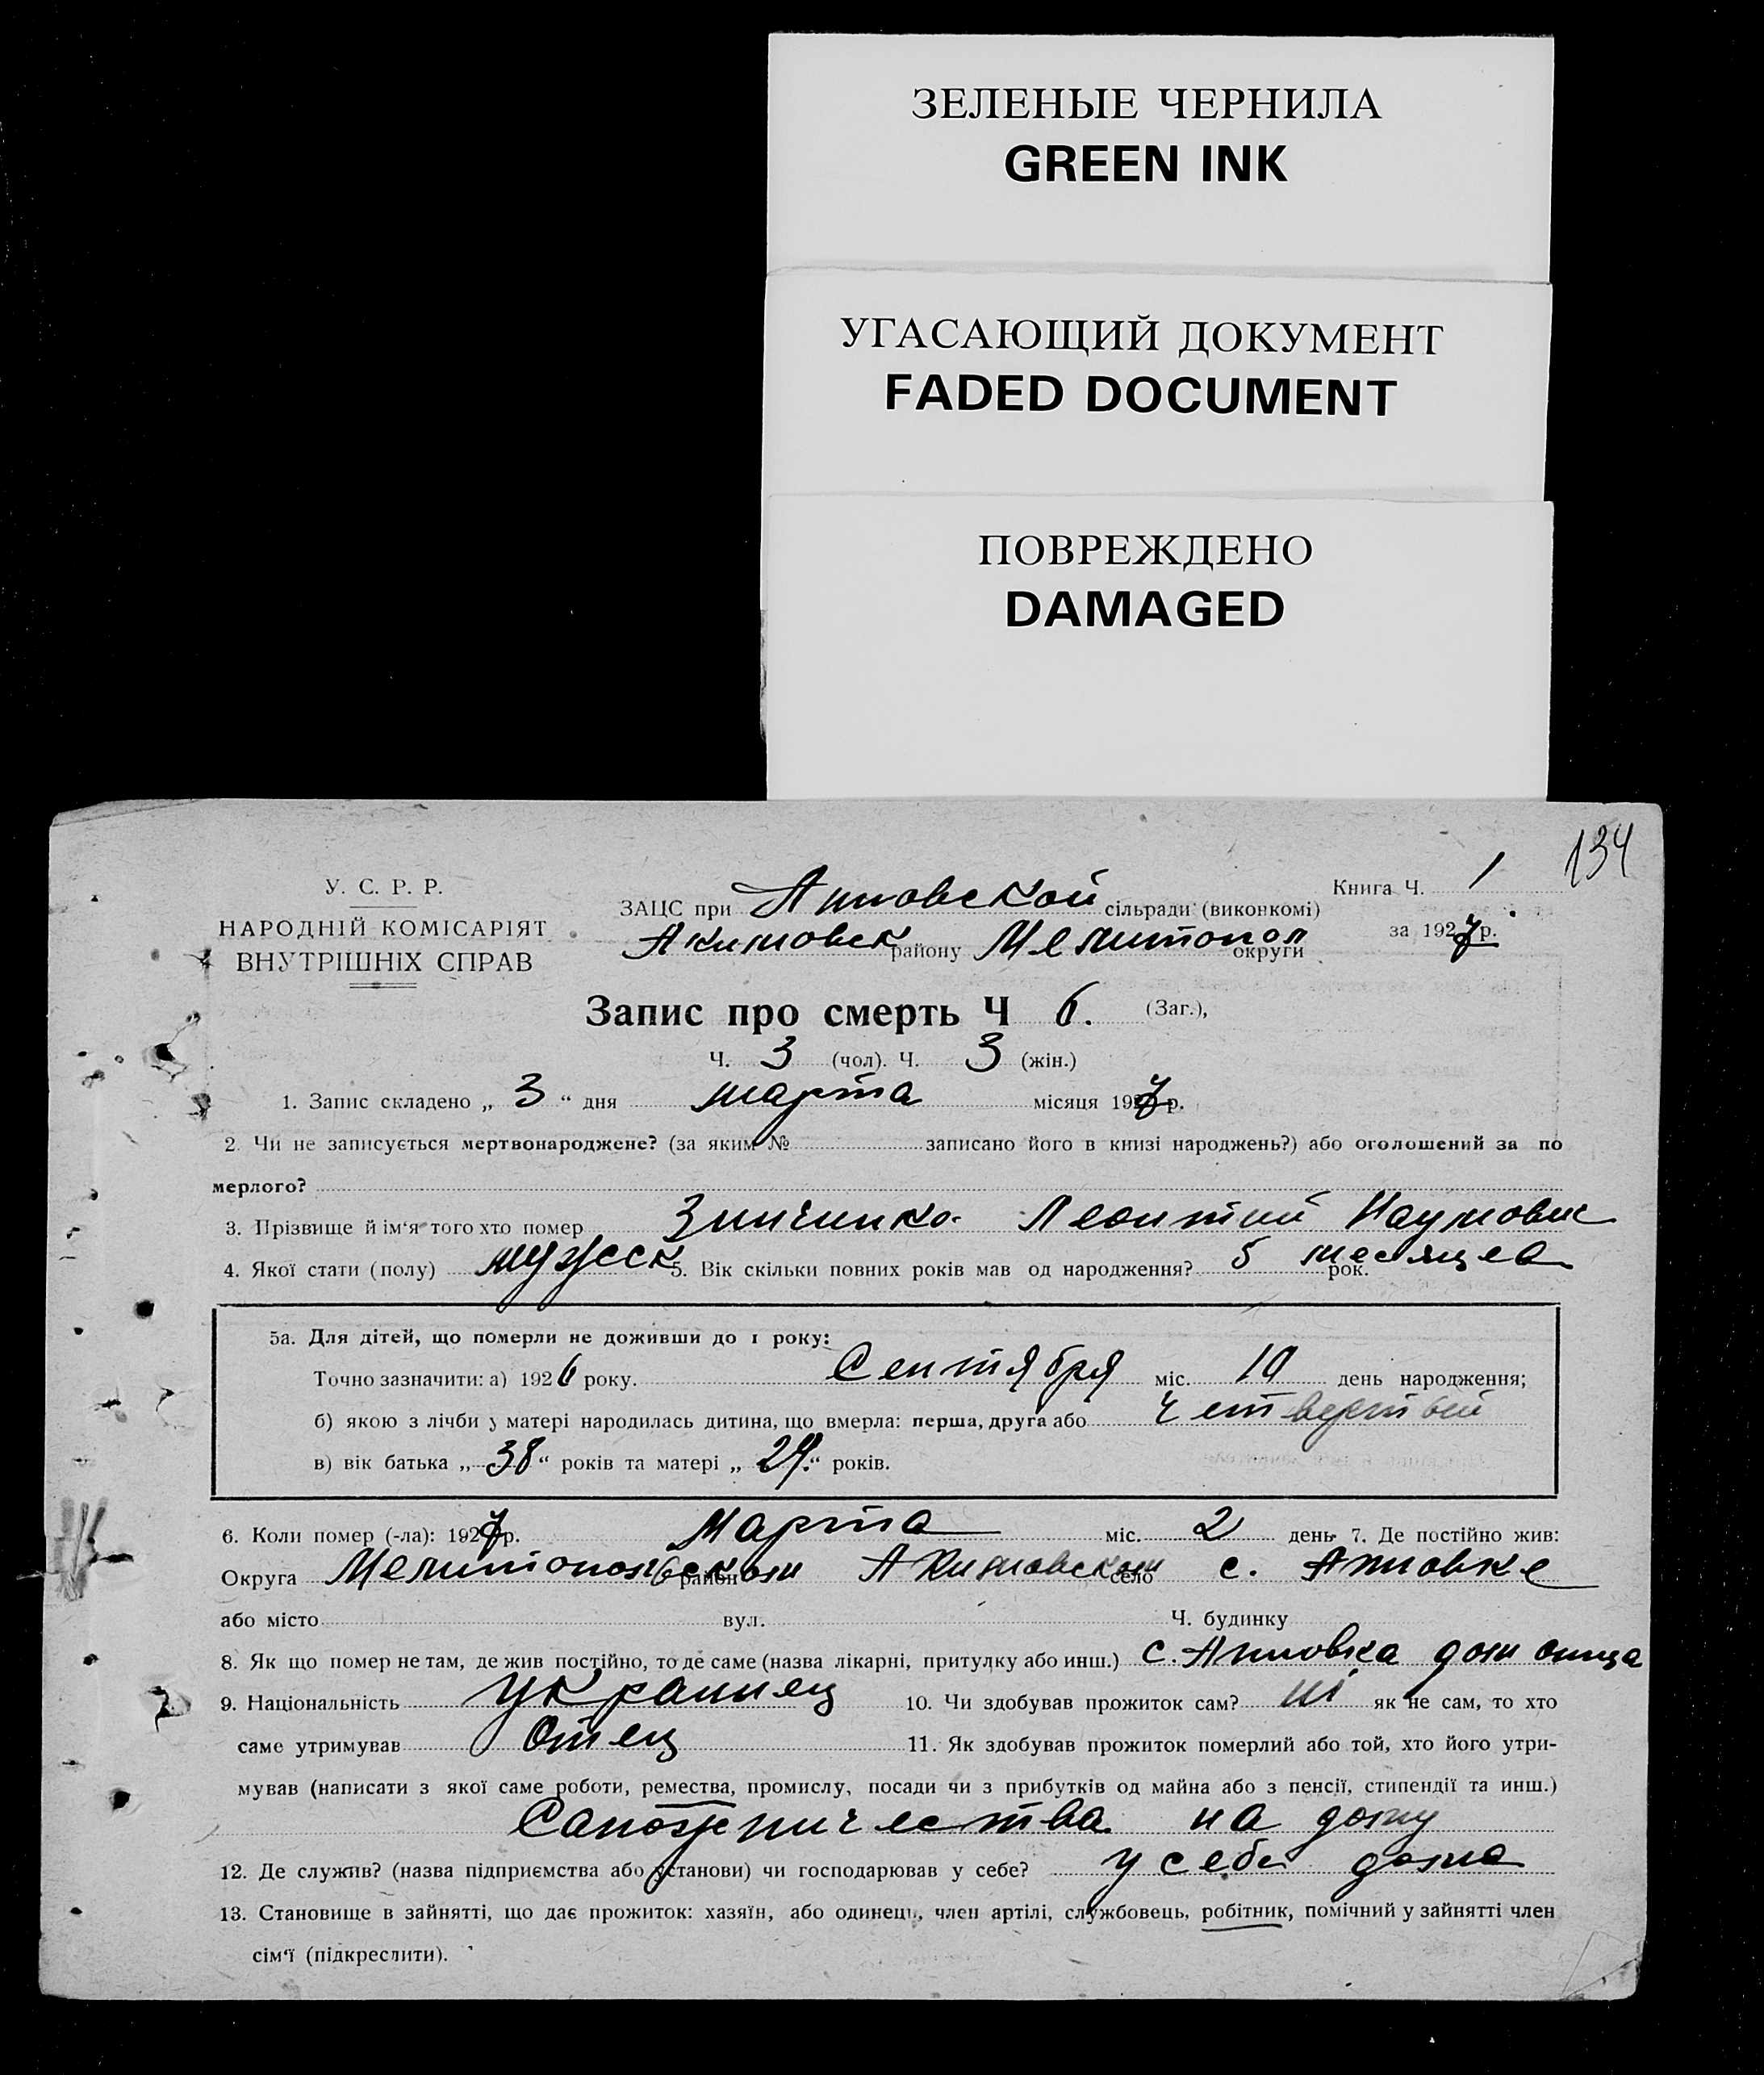 ЗЕЛЕНЫЕ ЧЕРНИЛА
GREEN INK
УГАСАЮЩИЙ ДОКУМЕНТ
FADED DOCUMENT
ПОВРЕЖДЕНО
DAMAGED
134
У. С. Р. Р.
НАРОДНІЙ КОМІСАРІЯТ
ВНУТРІШНІХ СПРАВ
Книга Ч. 1
ЗАЦС при Анновской сільради (виконкомі)
за 1927 р.
Акимовск району Мелитопол округи
Запис про смерть Ч 6. (Заг.),
Ч. 3 (чол). Ч. 3 (жін.)
1. Запис складено „ 3 “ дня марта місяця 1927 р.
2. Чи не записується мертвонароджене? (за яким № записано його в книзі народжень?) або оголошений за по
мерлого?
3. Прізвище й ім‘я того хто помер Зинчинко Леонтий Наумович
4. Якої стати (полу) мужеск 5. Вік скільки повних років мав од народження? 5 месяцев рок.
5а. Для дітей, що померли не доживши до 1 року:
Точно зазначити: а) 1926 року. Сентября міс. 10 день народження;
б) якою з лічби у матері народилась дитина, що вмерла: перша, друга або четвертый
в) вік батька „ 38 “ років та матері „ 29. “ років.
6. Коли помер (-ла): 1927 р. Марта міс. 2 день 7. Де постійно жив:
Округа Мелитопольском район Акимовском село с. Анновке
або місто вул. Ч. будинку
8. Як що помер не там, де жив постійно, то де саме (назва лікарні, притулку або инш.) с. Анновка дом отца
9. Національність Украинец 10. Чи здобував прожиток сам? ні як не сам, то хто
саме утримував Отец 11. Як здобував прожиток померлий або той, хто його утри-
мував (написати з якої саме роботи, ремества, промислу, посади чи з прибутків од майна або з пенсії, стипендії та инш.)
Сапожничества на дому
12. Де служив? (назва підприємства або установи) чи господарював у себе? у себе дома
13. Становище в зайнятті, що дає прожиток: хазяїн, або одинець, член артілі, службовець, робітник, помічний у зайнятті член
сім‘ї (підкреслити).